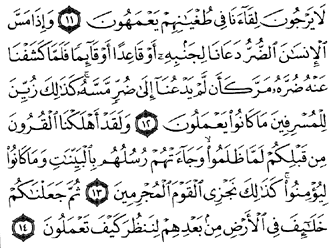 لَا يَرْجُونَ لِقَآءَنَا فِى طُغْيَٰنِهِمْ يَعْمَهُونَ ١١ وَإِذَا مَسَّ
ٱلْإِنسَٰنَ ٱلضُّرُّ دَعَانَا لِجَنۢبِهِۦٓ أَوْ قَاعِدًا أَوْ قَآئِمًا فَلَمَّا كَشَفْنَا
عَنْهُ ضُرَّهُۥ مَرَّ كَأَن لَّمْ يَدْعُنَآ إِلَىٰ ضُرٍّ مَّسَّهُۥ ۚ كَذَٰلِكَ زُيِّنَ
لِلْمُسْرِفِينَ مَا كَانُوا۟ يَعْمَلُونَ ١٢ وَلَقَدْ أَهْلَكْنَا ٱلْقُرُونَ
مِن قَبْلِكُمْ لَمَّا ظَلَمُوا۟ ۙ وَجَآءَتْهُمْ رُسُلُهُم بِٱلْبَيِّنَٰتِ وَمَا كَانُوا۟
لِيُؤْمِنُوا۟ ۚ كَذَٰلِكَ نَجْزِى ٱلْقَوْمَ ٱلْمُجْرِمِينَ ١٣ ثُمَّ جَعَلْنَٰكُمْ
خَلَٰٓئِفَ فِى ٱلْأَرْضِ مِنۢ بَعْدِهِمْ لِنَنظُرَ كَيْفَ تَعْمَلُونَ ١٤